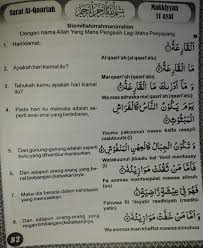 Surat Al-Qaariah
Makkiyyah
11 ayat
Bismillahirrahmanirrahim
Dengan nama Allah Yang Maha Pengasih Lagi Maha Penyayang.
1. Hari kiamat.
اَلْقَارِعَةُ
Al qaari'ah (al qaari'atu)
2. Apakah hari kiamat itu?
مَا الْقَارِعَةُ
Mal qaari'ah (qaari'atu)
3. Tahukah kamu apakah hari kiamat
itu?
وَمَا أَدْرَاكَ مَا الْقَارِعَةُ
Wa maa adraaka mal qaari'ah (qaari'atu)
4. Pada hari itu manusia adalah se-
perti anai-anai yang bertebaran.
يَوْمَ يَكُونُ النَّاسُ كَالْفَرَاشِ الْمَبْثُوثِ
Yauma yakuunun naasu kalfa raasyil
5. Dan gunung-gunung adalah seperti
bulu yang dihambur-hamburkan.
وَتَكُونُ الْجِبَالُ كَالْعِهْنِ الْمَنْفُوشِ
Watakuunul jibaalu kal 'ihnil manfuusy
6. Dan adapun orang-orang yang be-
rat timbangan(kebaikan)nya,
فَأَمَّا مَنْ ثَقُلَتْ مَوَازِينُهُ
Fa ammaa man
7. Maka dia berada dalam kehidupan
yang memuaskan
فَهُوَ فِي عِيشَةٍ رَاضِيَةٍ
Fahuwa fii
8. Dan adapun orang-orang yang
ringan timbangan(kebaikan)nya.
وَأَمَّا مَنْ خَفَّتْ مَوَازِينُهُ
Wa ammaa man khaffat
82